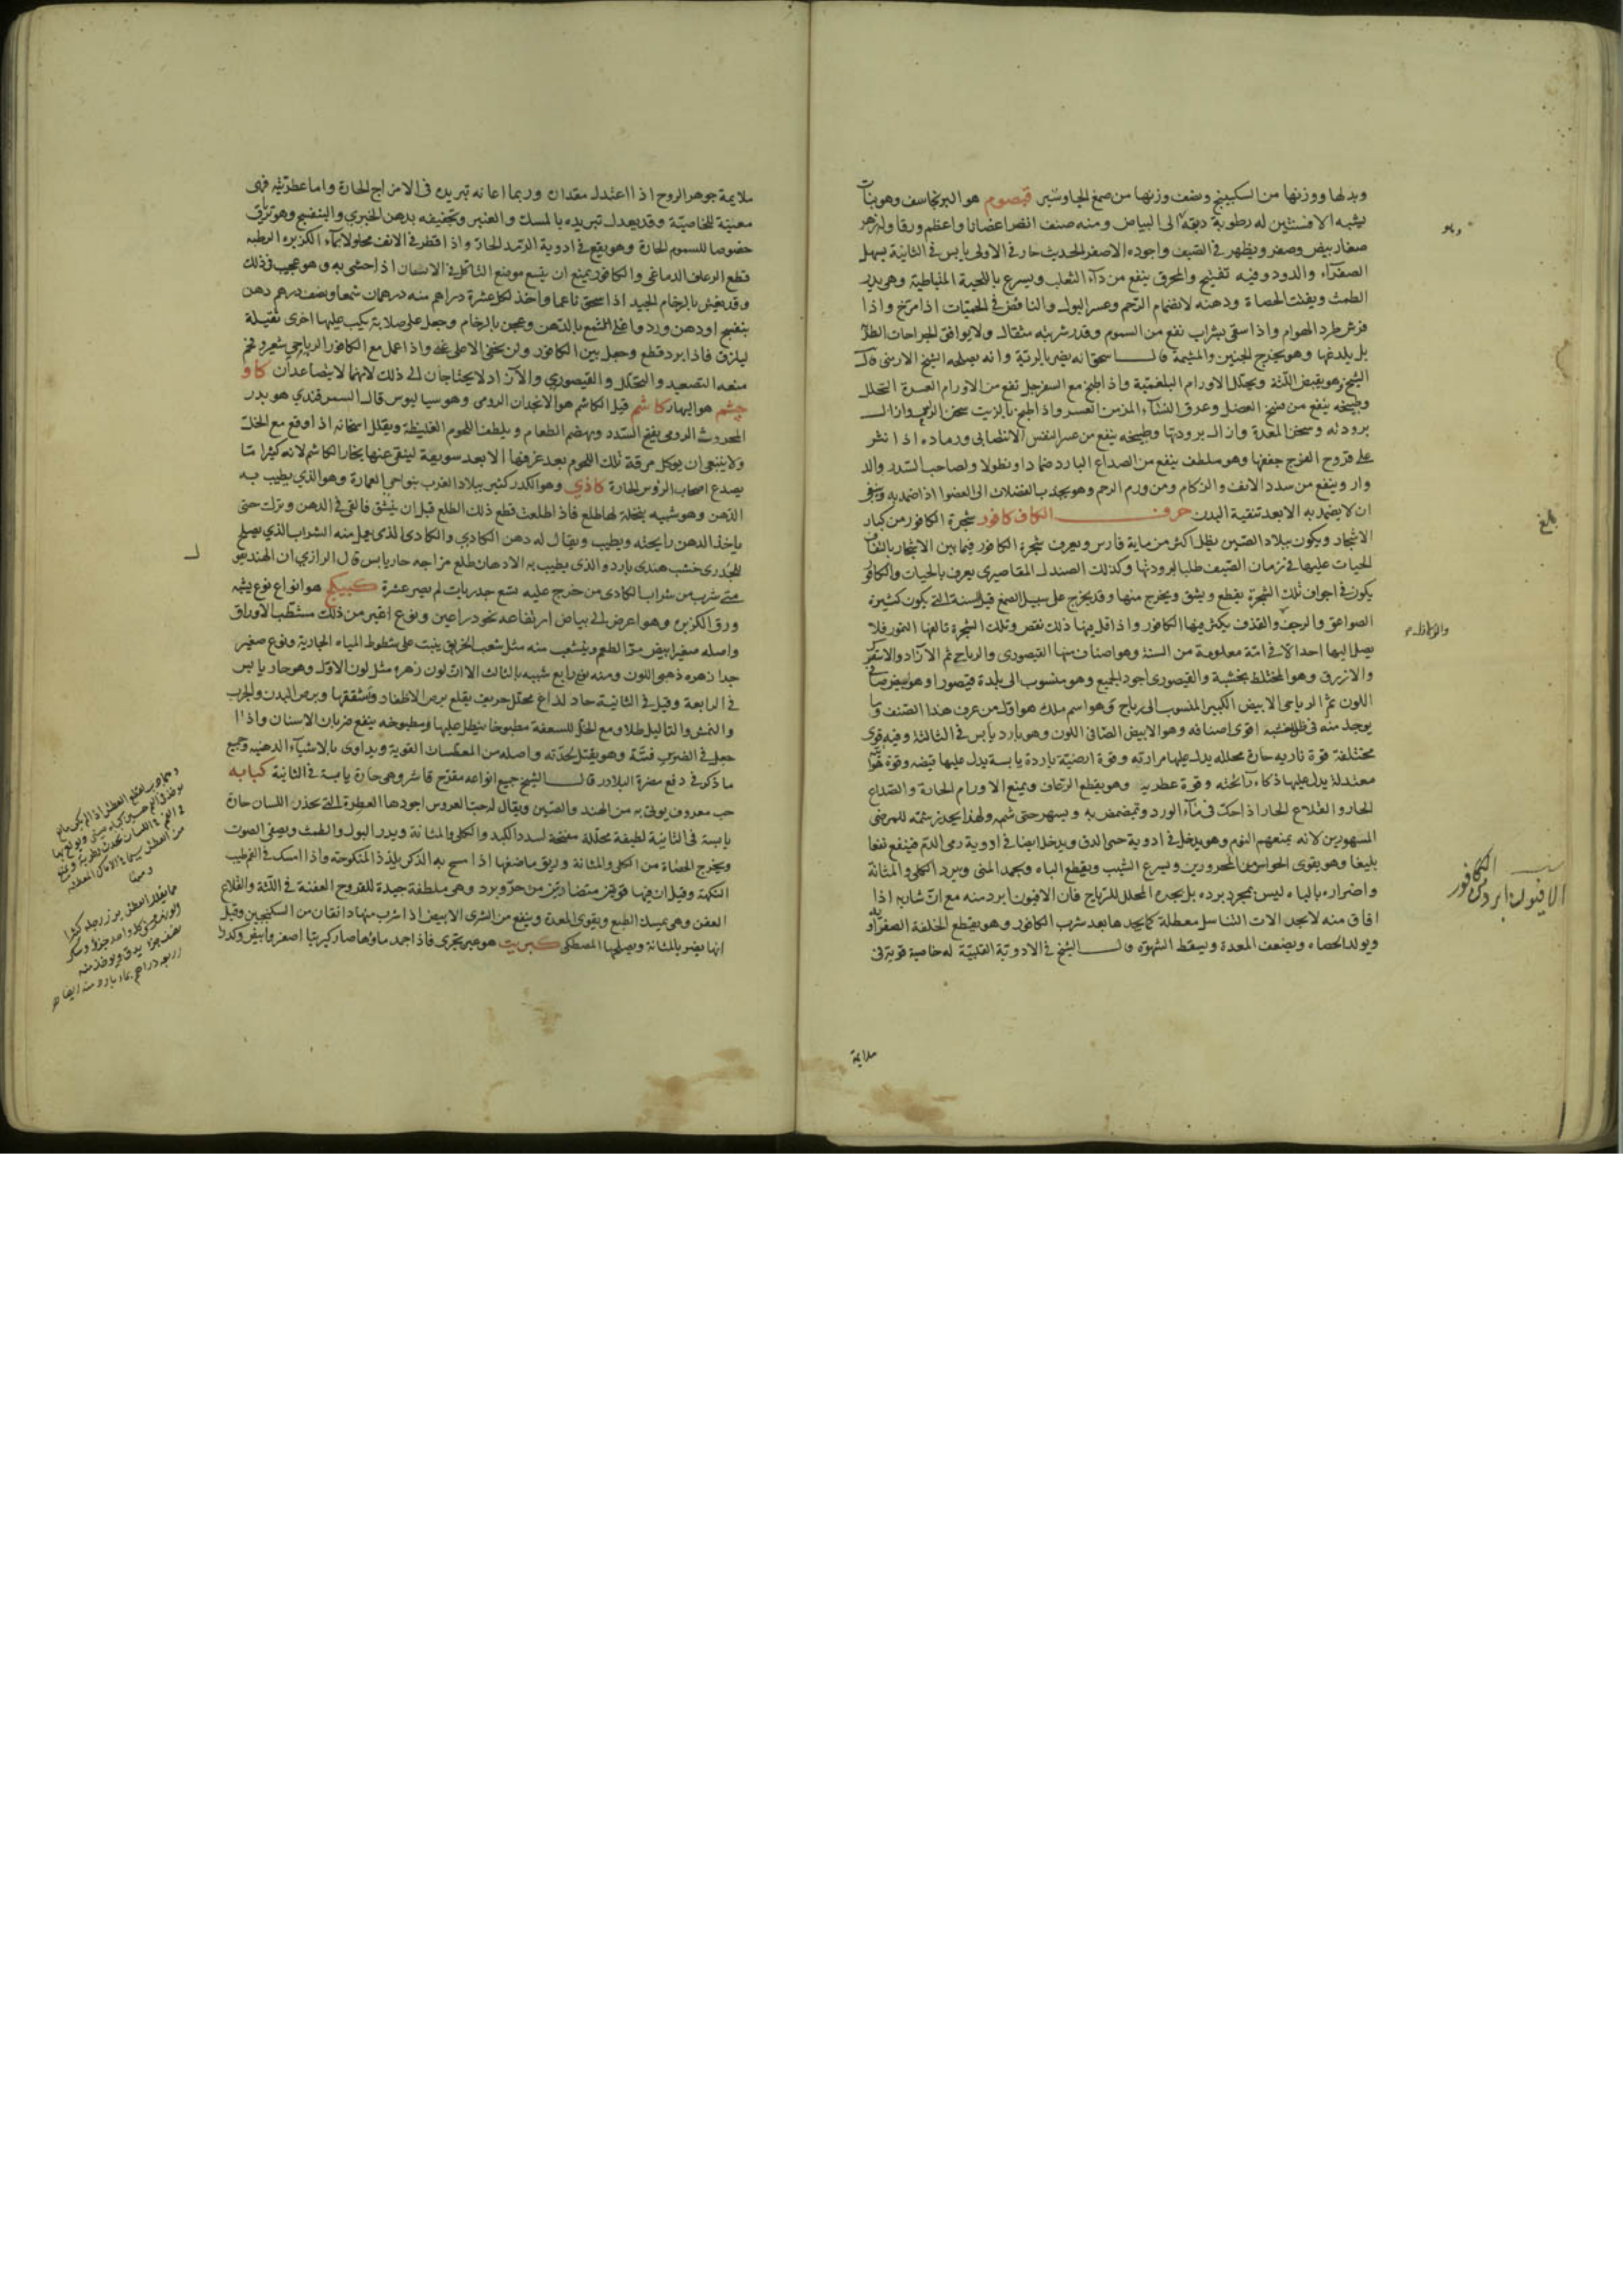 وبدلها ووزنها من السكبينج ونصف وزنها من صمغ الجاوشير قيصوم هو البرنجاسف وهو نبات
يشبه الافسنتين له رطوبة دبقة الى البياض ومنه صنف اقصر اغصانا واعظم ورقا وله زهر
صغار بيض وصفر ويظهر في الصيف واجوده الاصفر الحديث حار في الاولى يابس في الثانية يسهل
الصفراء والدود وفيه تفتيح والمحرق ينفع من داء الثعلب ويسرع باللحية المتباطية وهو يدر
الطمث ويفتت الحصاة ودهنه لانضمام الرحم وعسر البول والنافض في الحميات اذا مرخ واذا
فرش طرد الهوام واذا سقي بشراب نفع من السموم وقدر شربته مثقال ولا يوافق الجراحات الطرية
بل يلدغها وهو يخرج الجنين والمشيمة قال اسحق انه يضر بالرئة وانه يصلحه الشيخ الارمني قال
الشيخ وهو يقبض اللثة ويحلل الاورام البلغمية واذا طبخ مع السفرجل نفع من الاورام العسرة التحلل
وطبيخه ينفع من فسخ العضل وعرق النساء المزمن العسر واذا طبخ بالزيت سخن الرحم وازال
برودته وسخن المعدة وازال برودتها وطبيخه ينفع من عسر النفس الانتصابي ورماده اذا نثر
على قروح الفرج جففها وهو ملطف ينفع من الصداع البارد ضمادا ونطولا ولصاحب السدر والد
وار وينفع من سدد الانف والزكام ومن ورم الرحم وهو يجذب الفضلات الى العضو اذا ضمد به وينبغي
ان لا يضمد به الا بعد تنقية البدن حرف الكاف كافور شجرة الكافور من كبار
الاشجار ويكون ببلاد الصين يظل اكثر من ماية فارس ويعرف شجرة الكافور فيما بين الاشجار بالتفاف
الحيات عليها في زمان الصيف طلبا لبرودتها وكذلك الصندل المقاصيري يعرف بالحيات والكافور
يكون في اجواف تلك الشجرة يقطع ويشق ويخرج منها وقد يخرج على سبيل الصمغ قيل السنة التي يكون كثيرة
الصواعق والرجف والقذف يكثر فيها الكافور واذا قل فيها ذلك نقص وتلك الشجرة تالفها النمور فلا
يصل اليها احد الا في امة معلومة من السنة وهو اصناف منها القيصوري والرباحي ثم الازاد والاسفرك
والازرق وهو المختلط بخشبه والقيصوري اجود الجميع وهو منسوب الى بلدة قيصور وهو ابيض صافي
اللون ثم الرباحي الابيض الكبير المنسوب الى رباح وهو اسم ملك هو اول من عرف هذا الصنف وما
يوجد منه في ظل خشبه اقوى اصنافه وهو الابيض الصافي اللون وهو بارد يابس في الثالثة وفيه قوى
مختلفة قوة نارية حارة محللة يدل عليها مرارته وقوة ارضية باردة يابسة يدل عليها قبضه وقوة هوائية
معتدلة يدل عليها ذكاء رائحته وقوة عطرية وهو يقطع الرعاف ويمنع الاورام الحارة والصداع
الحار والقلاع الحار اذا حك في ماء الورد وتمضمض به ويسهر حتى شمه ولهذا يحذر شمه للمرضى
المسهورين لانه يمنعهم النوم وهو يدخل في ادوية حمى الدق ويدخل ايضا في ادوية رمي الدم فينفع نفعا
بليغا وهو يقوى الحواس من المحرورين ويسرع الشيب ويقطع الباه ويجمد المني ويبرد الكلى والمثانة
واضراره بالباه ليس بمجرد برده بل يجده المحلل للرياح فان الافيون ابرد منه مع ان شاربه اذا
افاق منه لا يجد الات التناسل معطلة كما يجدها بعد شرب الكافور وهو يقطع الخلفة الصفراوية
ويولد الحصاء ويضعف المعدة ويسقط الشهوة قال الشيخ في الادوية القلبية له خاصية قوية في
ملايمة
بلغ
الافيون ابرد من الكافور
ملايمة جوهر الروح اذا اعتدل مقداره وربما اعانه تبريده في الامزاج الحارة واما عطريته فهى
معينة للخاصية وقد يعدل تبريده بالمسك والعنبر وتجفيفه بدهن الخيري والبنفسج وهو ترياق
خصوصا للسموم الحارة وهو يقع في ادوية الرمد الحار واذا قطر في الانف محلولا بماء الكزبره الرطبه
قطع الرعاف الدماغى والكافور يمنع ان يتسع موضع التاكل في الاسنان اذا حشى به وهو عجيب في ذلك
وقد يغش بالرخام الجيد اذا سحق ناعما واخذ لكل عشرة دراهم منه درهمان شمعا ونصف درهم دهن
بنفسج او دهن ورد واغلى الشمع بالدهن وعجن بالرخام وجعل على صلاية يركب عليها اخرى ثقيلة
ليلزق فاذا برد قطع وجعل بين الكافور ولن يخفى الا على غفه واذا عمل مع الكافور الرباحي شعر وغم
منعه التصعيد والتحلل والقيصوري والازاد لا يحتاجان الى ذلك لانهما لا يتصاعدان كاو
چشم هو البهار كاشم قيل الكاشم هو الانجدان الرومى وهو سيساليوس قال السمرقندي هو بدر
المحروث الرومى يفتح السدد ويهضم الطعام ويلطف اللحوم الغليظة ويقلل اسخانه اذا اوقع مع الخل
ولا ينبغى ان يوكل مرقة تلك اللحوم بعد غرفها الا بعد سويعة لينقى عنها بخار الكاشم لانه كثيرا ما
يصدع اصحاب الرؤس الحارة كاذي وهو الكدر كثير ببلاد العرب بنواحي العمارة وهو الذي يطيب به
الدهن وهو شبيه بنخلة لها طلع فاذا اطلعت قطع ذلك الطلع قبل ان ينشق فالقى في الدهن وترك حتى
ياخذ الدهن رايحته ويطيب ويقال له دهن الكاذي والكاذى الذى يعمل منه الشراب الذي يصلح
للجدرى خشب هندى بارد والذى يطيب به الادهان طلع مزاجه حار يابس قال الرازي ان الهند تقول
متى شرب من شراب الكاذى من خرج عليه تسع جدريات لم يصر عشرة كبيكج هو انواع نوع يشبه
ورق الكزبره وهو اعرض الى بياض ارتفاعه نحو ذراعين ونوع اغبر من ذلك مشطب الاوراق
واصله صغير ابيض مر الطعم وينشعب منه مثل شعب الخربق ينبت على شطوط المياه الجارية ونوع صغير
جدا زهره ذهبي اللون ومنه نوع رابع شبيه بالثالث الا ان لون زهره مثل لون الاول وهو حار يابس
في الرابعة وقيل في الثانية حاد لداغ محلل حريف يقلع برص الاظفار وتشققها وبرص البدن والجرب
والنمش والثاليل طلا ومع الخل للسعفة مطبوخا ينطل عليها ومطبوخه ينفع ضربان الاسنان واذا
جعل في الضرس فتته وهو يقتل بحدته واصله من المعطسات القوية ويداوى بالاشياء الدهنية وجميع
ما ذكر في دفع مضرة البلادر قال الشيخ جميع انواعه مقرح قاشر وهى حارة يابسة في الثانية كبابه
حب معروف يوتى به من الهند والصين ويقال له حب العروس اجودها العطرة التي تحذر اللسان حارة
يابسة في الثانية لطيفة محللة مفتحة لسدد الكبد والكلى والمثانة ويدر البول والطمث ويصفى الصوت
ويخرج الحصاة من الكلى والمثانة وريق ماضغها اذا مسح به الذكر يلذذ المنكوحة واذا امسك في الفم طيب
النكهة وقيل ان فيها قوتين متضادتين من حر وبرد وهى ملطفة جيدة للقروح العفنة في اللثة والقلاع
العفن وهى يمسك الطبع ويقوى المعدة وينفع من الشرى الابيض اذا شرب منها دانقان من السكنجبين وقيل
انها يضر بالمثانة ويصلحها المصطكى كبريت هو عين تجرى فاذا جمد ماؤها صار كبريتا اصفر وابيض وكدرا